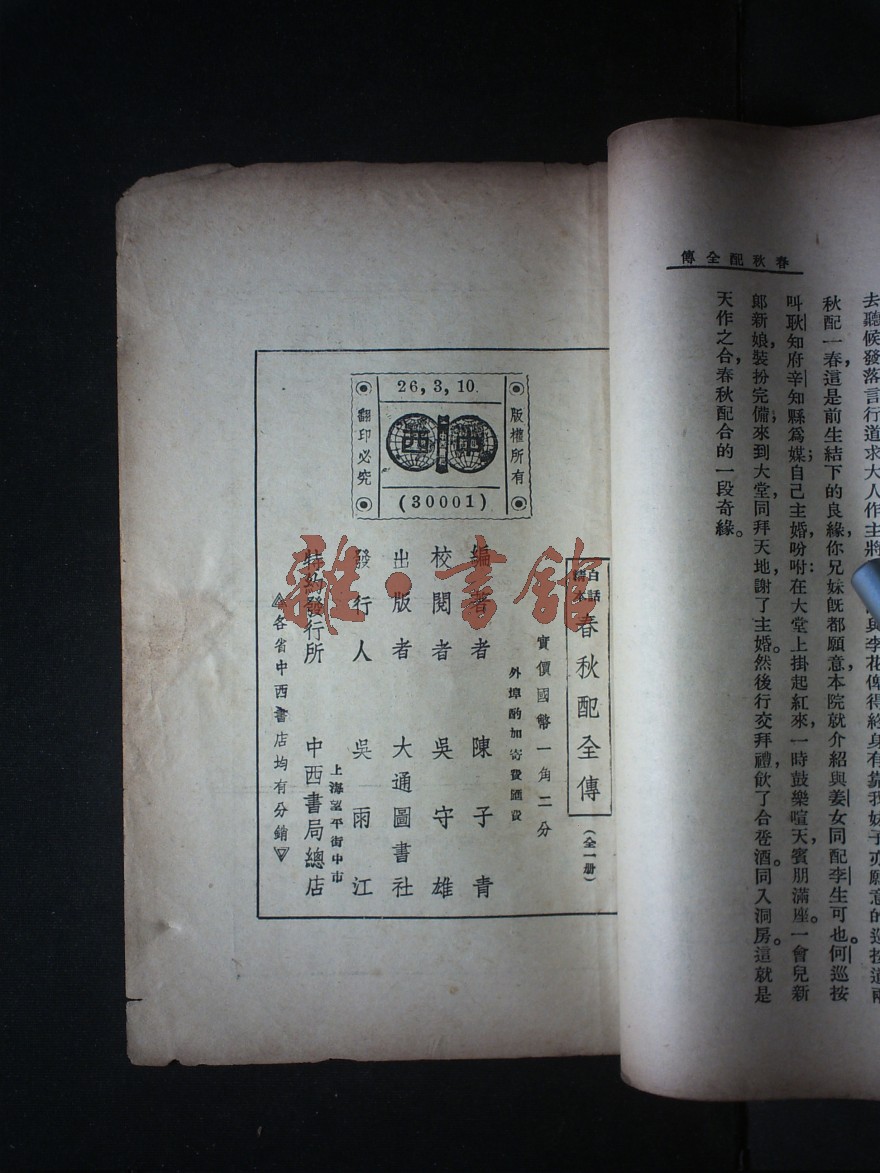 春秋配全傳
秋配一春這是前生結下的良緣，你兄妹旣都願意，本院就介紹與姜女同配李生可也。何巡按
叫耿知府辛知縣爲媒；自己主婚，吩咐：在大堂上掛起紅來，一時鼓樂喧天，賓朋滿座。一會兒新
郎新娘，裝扮完備，來到大堂，同拜天地，謝了主婚。然後行交拜禮，飲了合巹酒。同入洞房。這就是
天作之合，春秋配合的一段奇緣。
26, 3, 10.
版權所有
翻印必究
中西
(30001)
白話講本 春秋配全傳 (全一册)
實價國幣一角二分
外埠酌加寄費匯費
編著者 陳子青
校閱者 吳守雄
出版者 大通圖書社
發行人 吳雨江
特約發行所 上海望平街中市 中西書局總店
各省中西書店均有分銷
雜·書館